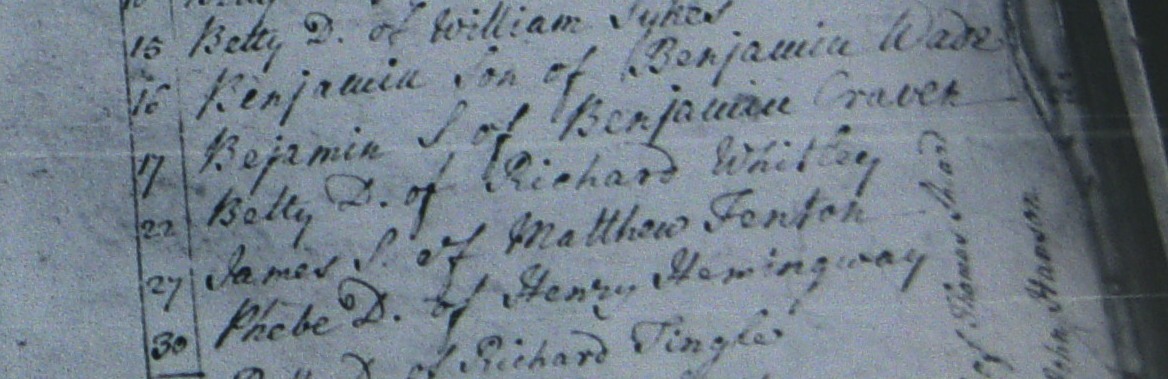 15 Betty D. of William Sykes
16 Benjamin Son of Benjamin Wade
17 Bejamin S of Benjamin Craven
22 Betty D. of Richard Whitley
27 James S. of Matthew Fenton
30 Phebe D. of Henry Hemingway
D. of Richard Tingle
of Thomas Shard
John Hanson